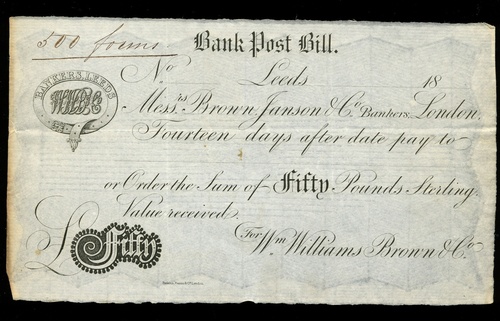 500 forms
Bank Post Bill.
BANKERS, LEEDS
No. Leeds 18
Messrs. Brown, Janson & Co. Bankers, London,
Fourteen days after date pay to
or Order the Sum of Fifty Pounds Sterling
Value received
£ Fifty
For Wm. Williams Brown & Co.